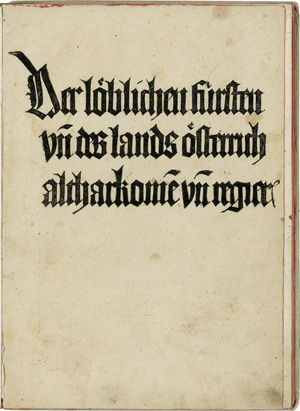 Der löblichen fürsten
vñ des lands österrich
altharkomē vñ regier